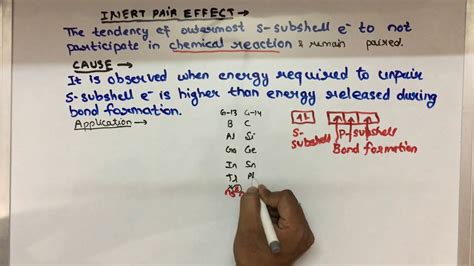 INERT PAIR EFFECT →
The tendency of outermost s-subshell e⁻ to not
participate in chemical reaction & remain paired.
CAUSE →
It is observed when energy required to unpair
s-subshell e⁻ is higher than energy released during
bond formation.
Application →
G-13 G-14
B C
Al Si
Ga Ge
In Sn
Tl P
s-subshell
P-subshell
Bond formation